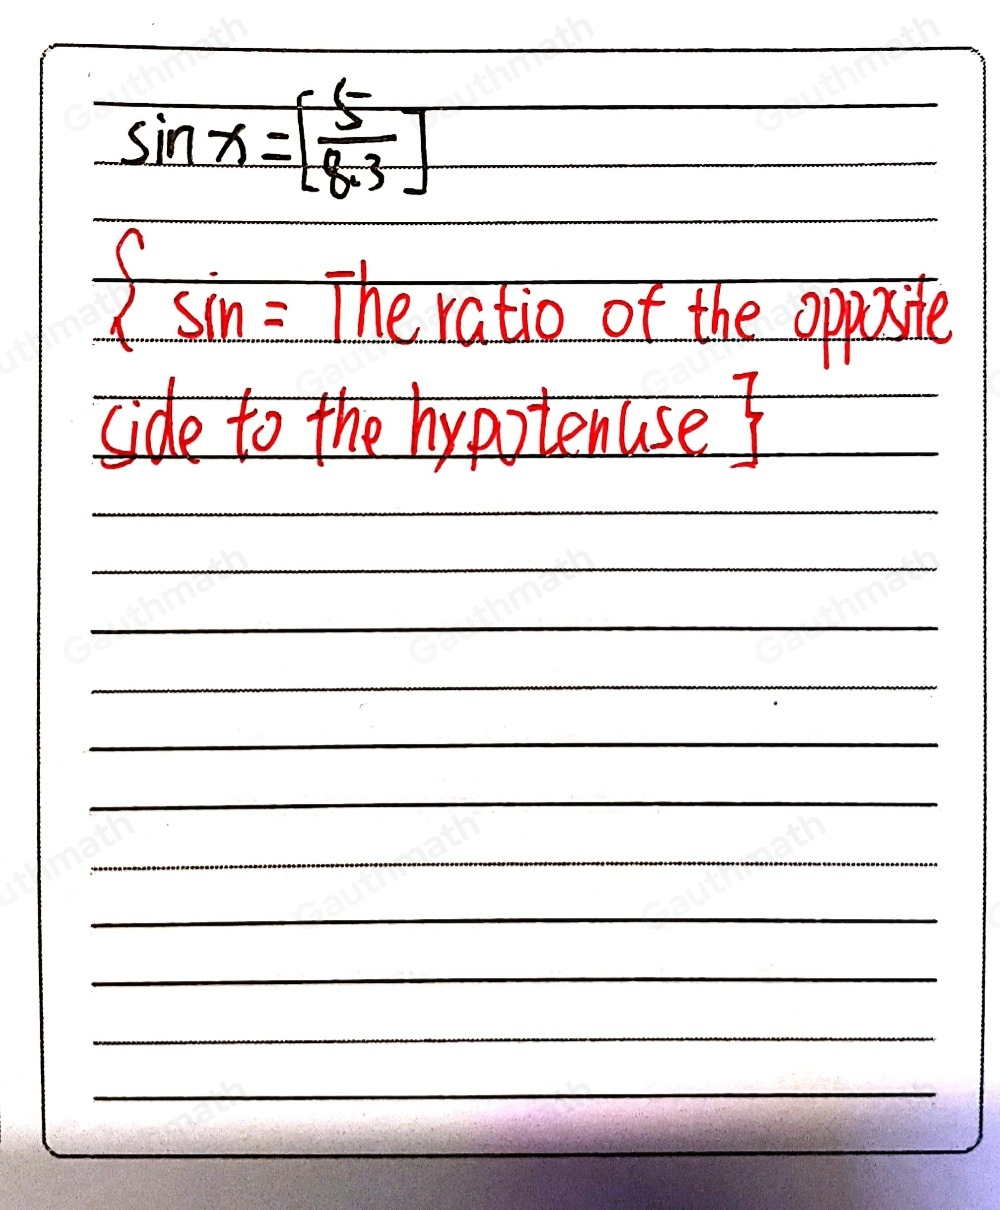 sin x = [5/8.3]
{ sin = The ratio of the opposite
side to the hypotenuse }
Gauthmath